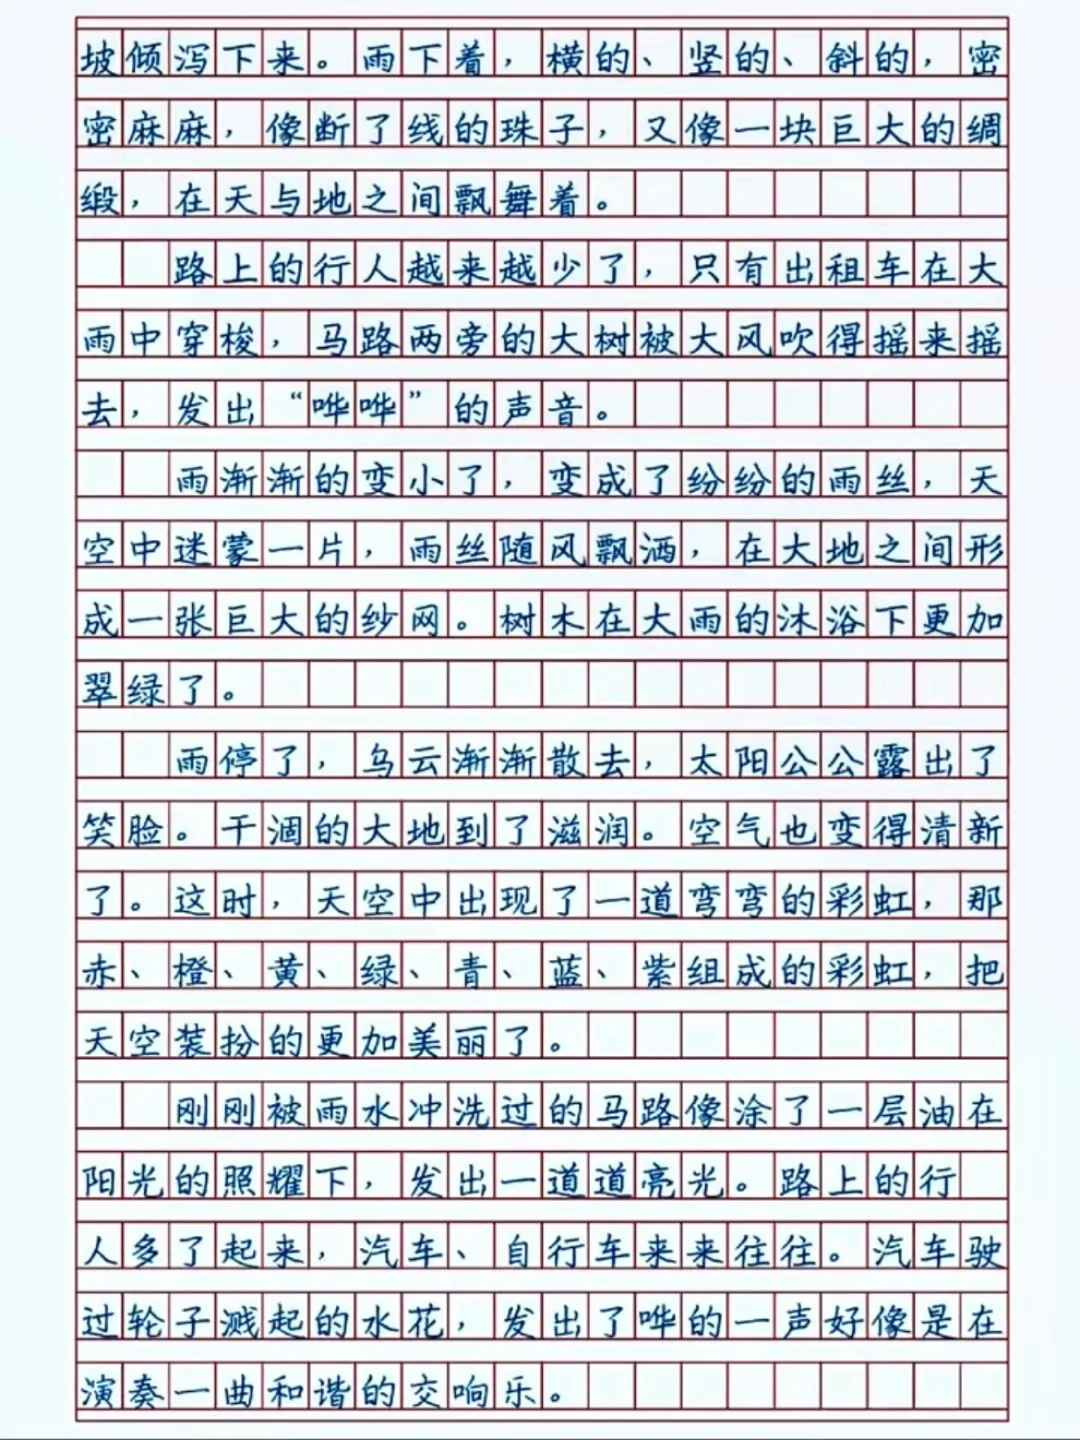 坡倾泻下来。雨下着，横的、竖的、斜的，密
密麻麻，像断了线的珠子，又像一块巨大的绸
缎，在天与地之间飘舞着。
路上的行人越来越少了，只有出租车在大
雨中穿梭，马路两旁的大树被大风吹得摇来摇
去，发出“哗哗”的声音。
雨渐渐的变小了，变成了纷纷的雨丝，天
空中迷蒙一片，雨丝随风飘洒，在大地之间形
成一张巨大的纱网。树木在大雨的沐浴下更加
翠绿了。
雨停了，乌云渐渐散去，太阳公公露出了
笑脸。干涸的大地到了滋润。空气也变得清新
了。这时，天空中出现了一道弯弯的彩虹，那
赤、橙、黄、绿、青、蓝、紫组成的彩虹，把
天空装扮的更加美丽了。
刚刚被雨水冲洗过的马路像涂了一层油在
阳光的照耀下，发出一道道亮光。路上的行
人多了起来，汽车、自行车来来往往。汽车驶
过轮子溅起的水花，发出了哗的一声好像是在
演奏一曲和谐的交响乐。